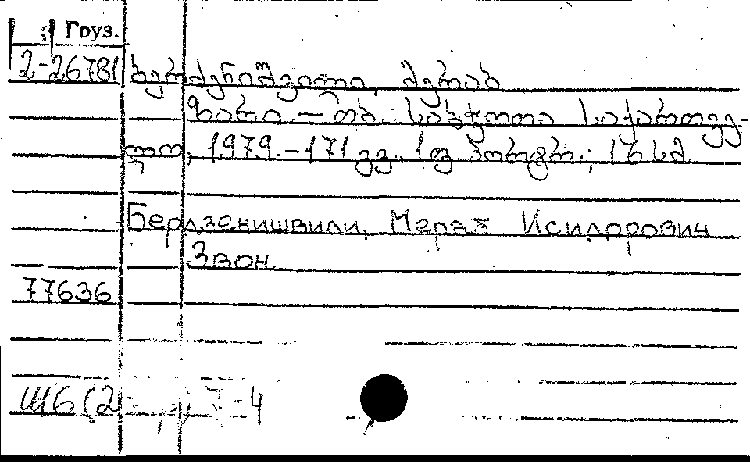 Груз.
2-26781 ბერძენიშვილი, მერაბ
ზარი. – თბ. საბჭოთა საქართვე-
ლო, 1979. – 171 გვ., 1ფ პორტრ.; 17 სმ
Бердзенишвили, Мераб Исидорович
Звон.
77636
Ш6(2 7-4